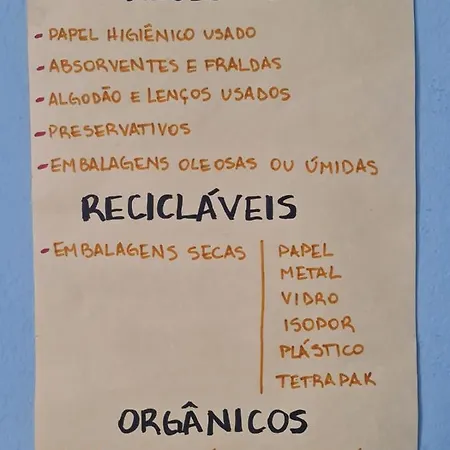 - PAPEL HIGIÊNICO USADO
- ABSORVENTES E FRALDAS
- ALGODÃO E LENÇOS USADOS
- PRESERVATIVOS
- EMBALAGENS OLEOSAS OU ÚMIDAS
RECICLÁVEIS
- EMBALAGENS SECAS
PAPEL
METAL
VIDRO
ISOPOR
PLÁSTICO
TETRAPAK
ORGÂNICOS